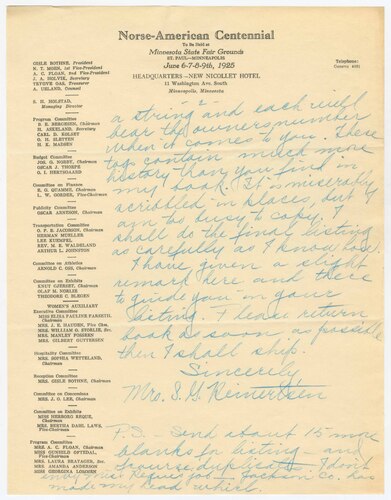 Norse-American Centennial
To Be Held at
Minnesota State Fair Grounds
ST. PAUL—MINNEAPOLIS
June 6-7-8-9th, 1925
HEADQUARTERS—NEW NICOLLET HOTEL
11 Washington Ave. South
Minneapolis, Minnesota
Telephone:
Geneva 4081
GISLE BOTHNE, President
N. T. MOEN, 1st Vice-President
A. C. FLOAN, 2nd Vice-President
J. A. HOLVIK, Secretary
TRYGVE OAS, Treasurer
A. UELAND, Counsel
S. H. HOLSTAD,
Managing Director
Program Committee
B. E. BERGESEN, Chairman
H. ASKELAND, Secretary
CARL D. KOLSET
O. H. SLETTEN
H. K. MADSEN
Budget Committee
JOS. G. NORBY, Chairman
OSCAR J. THORPE
O. I. HERTSGAARD
Committee on Finance
E. G. QUAMME, Chairman
L. W. GORDER, Vice-Chairman
Publicity Committee
OSCAR ARNESON, Chairman
Transportation Committee
O. P. B. JACOBSON, Chairman
HERMAN MUELLER
LEE KUEMPEL
REV. M. E. WALDELAND
ARTHUR L. JOHNSTON
Committee on Athletics
ARNOLD C. OSS, Chairman
Committee on Exhibits
KNUT GJERSET, Chairman
OLAF M. NORLIE
THEODORE C. BLEGEN
WOMEN'S AUXILIARY
Executive Committee
MISS ELISA PAULINE FARSETH,
Chairman
MRS. J. E. HAUGEN, Vice Chm.
MRS. WILLIAM O. STORLIE, Sec.
MRS. MANLEY FOSSEEN
MRS. GILBERT GUTTERSEN
Hospitality Committee
MRS. SOPHIA WETTELAND, Chairman
Reception Committee
MRS. GISLE BOTHNE, Chairman
Committee on Concessions
MRS. J. O. LEE, Chairman
Committee on Exhibits
MISS HERBORG REQUE, Chairman
MRS. BERTHA DAHL LAWS,
Vice-Chairman
Program Committee
MRS. A. C. FLOAN, Chairman
MISS GUNHILD OFTEDAL,
Vice-Chairman
MRS. LAURA BRATAGER, Sec.
MRS. AMANDA ANDERSON
MISS GEORGINA LOMMEN
-2-
a string and each will
bear the owners number
when it come to you. These
tags contain much more
history than you find in
my book. It is miserably
scribbled in places, but I
am too busy to copy. I
shall do the final listing
as carefully as I know how.
I have given a slight
remark here and there
to guide you in your
listing. Please return
book as soon as possible
then I shall ship.
Sincerely
Mrs. S. G. Reinertsen
P.S. Send about 15 more
blanks for listing - and
of course duplicates. I don't
envy Miss Reque's job - Jackson Co. has
made my head whirl